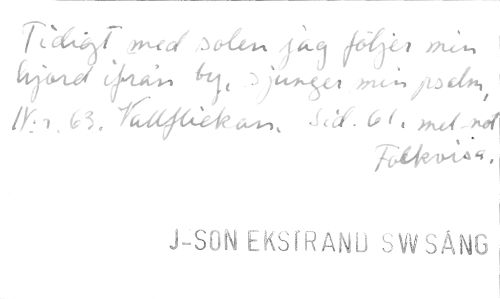 Tidigt med solen jag följer min
hjord ifrån by, sjunger min psalm,
N:r. 63. Vallflickan. Sid. 61. mel. not
Folkvisa.
J-SON EKSTRAND SW SÅNG